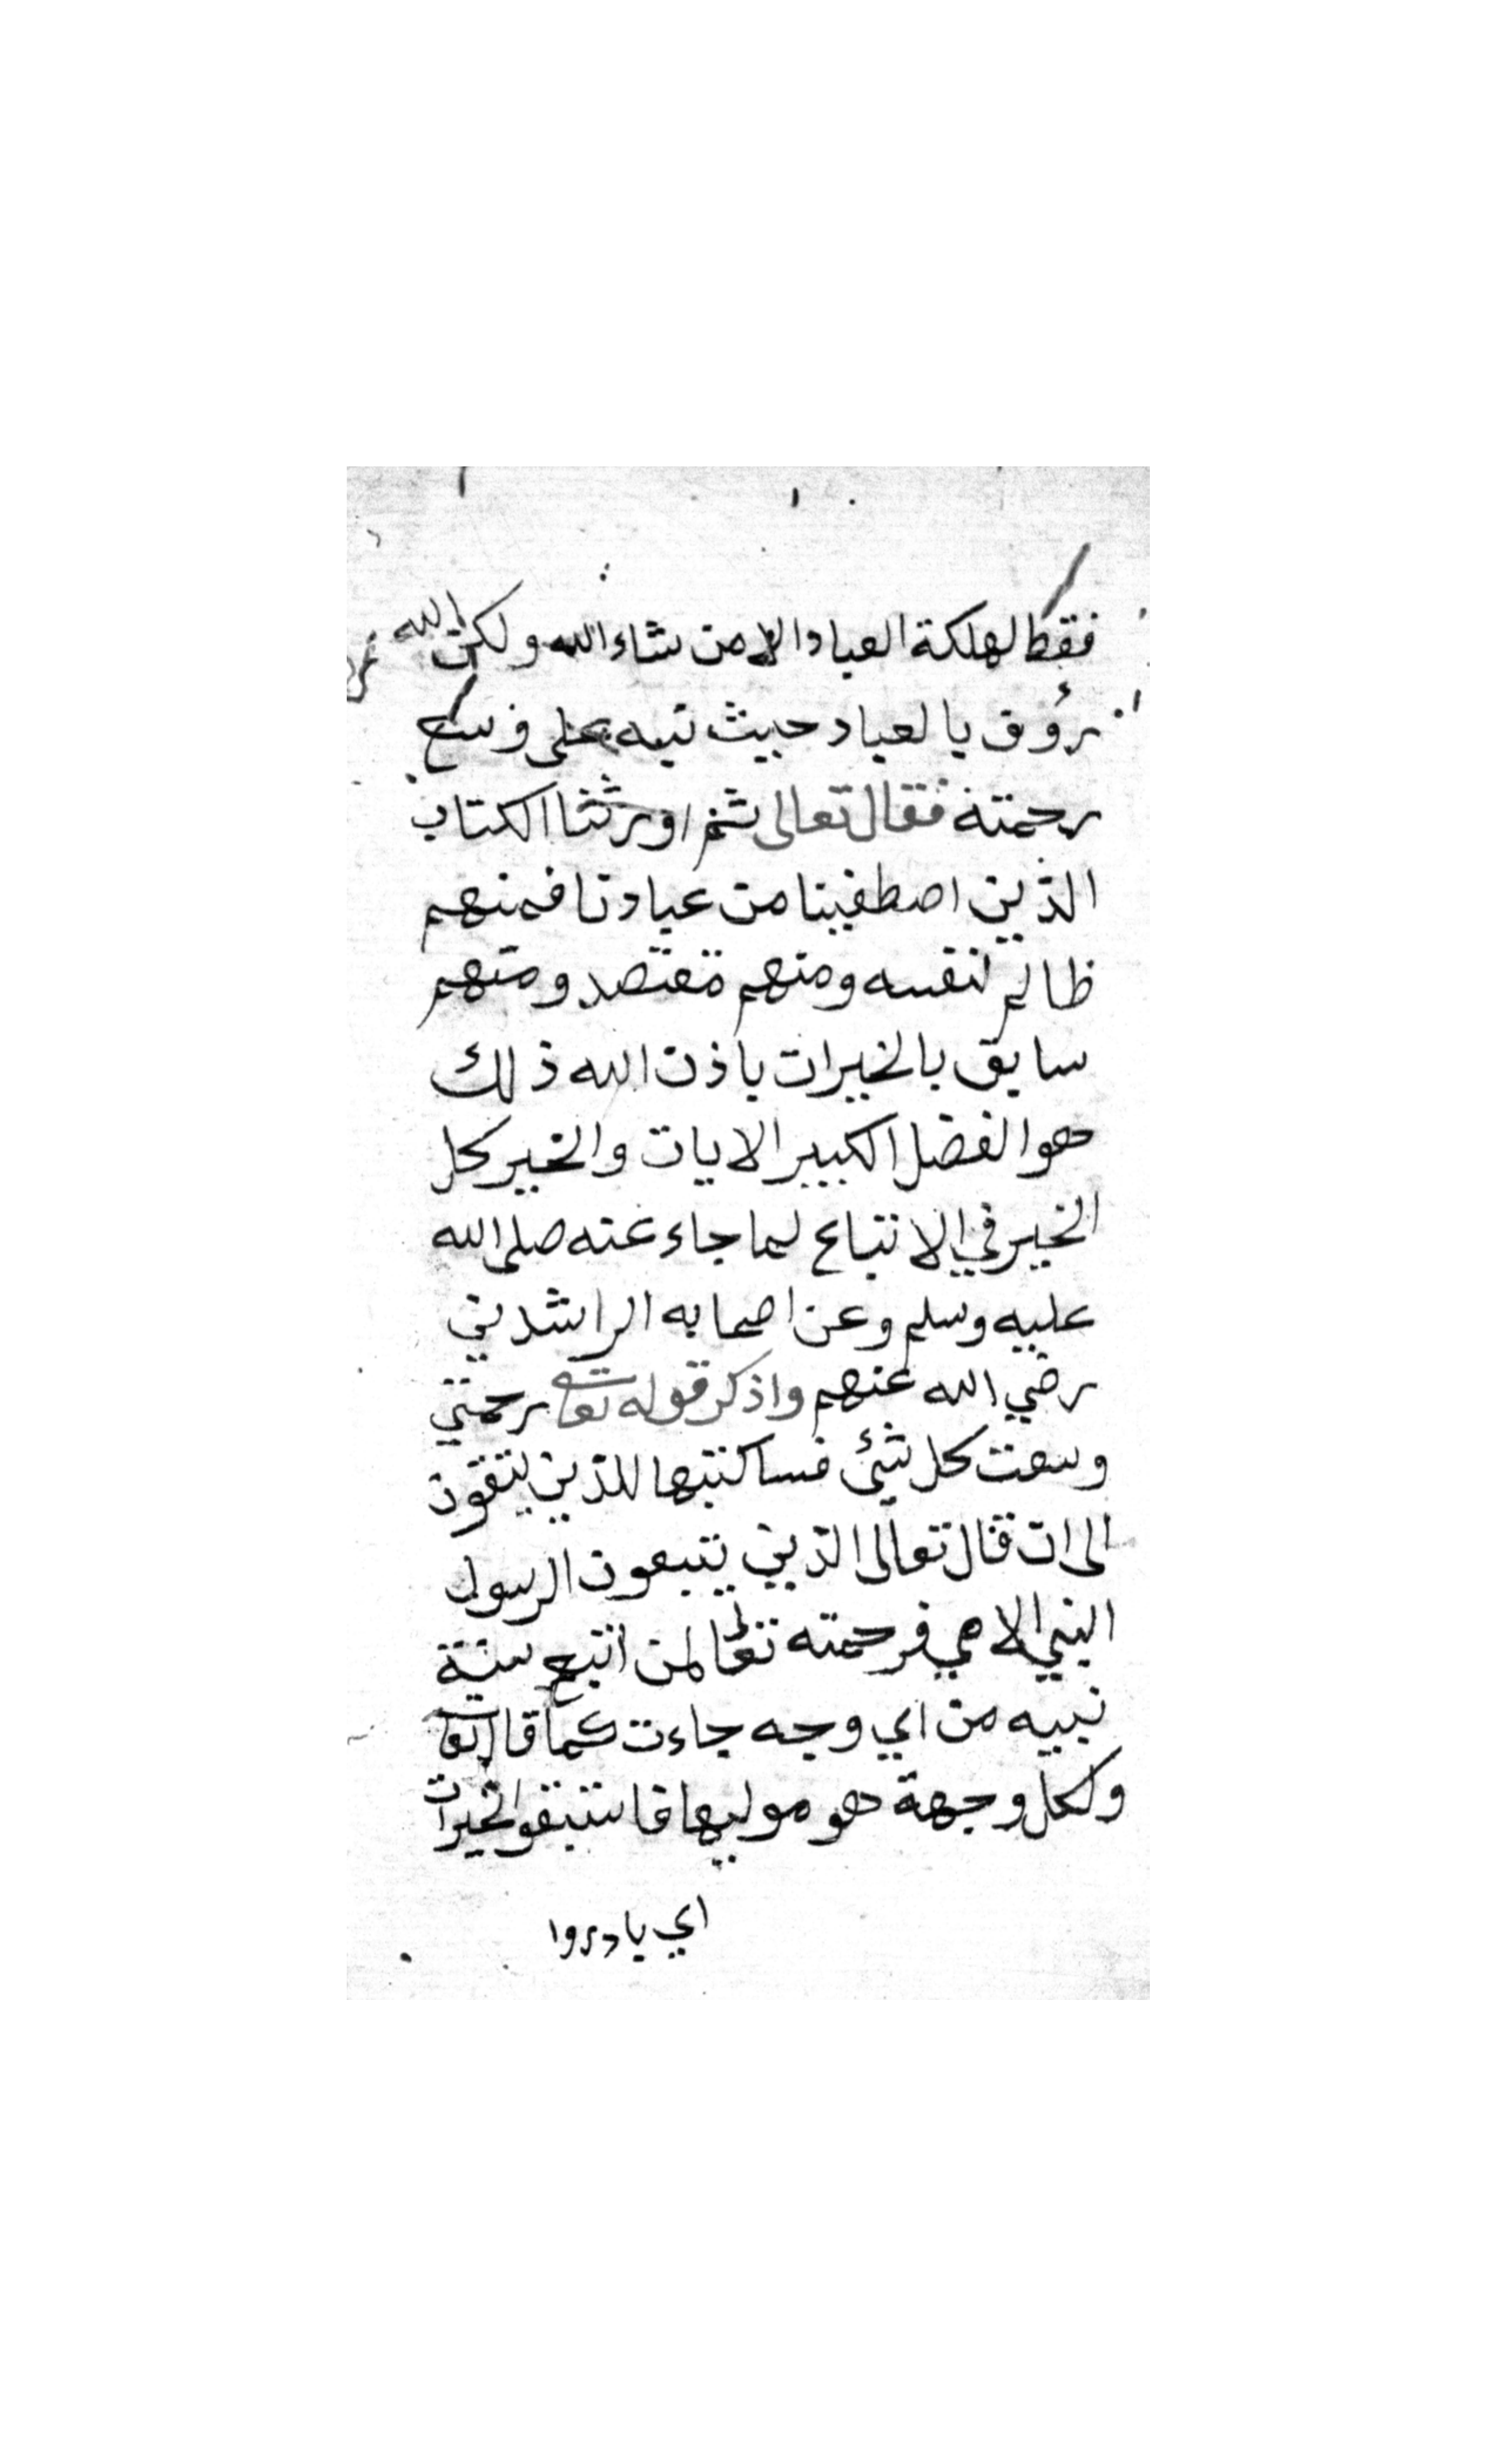 فقط لهلكة العباد الا من شاء الله ولكن الله
رؤف بالعباد حيث نبه على وسع
رحمته فقال تعالى ثم اورثنا الكتاب
الذين اصطفينا من عبادنا فمنهم
ظالم لنفسه ومنهم مقتصد ومنهم
سابق بالخيرات باذن الله ذلك
هو الفضل الكبير الايات والخير كل
الخير في الاتباع لما جاء عنه صلى الله
عليه وسلم وعن اصحابه الراشدين
رضي الله عنهم واذكر قوله تعالى رحمتي
وسعت كل شئ فساكتبها للذين يتقون
الى ان قال تعالى الذين يتبعون الرسول
النبي الامي فرحمته تعالى لمن اتبع سنة
نبيه من اي وجه جاءت كما قال تعالى
ولكل وجهة هو موليها فاستبقوا الخيرات
اي بادروا